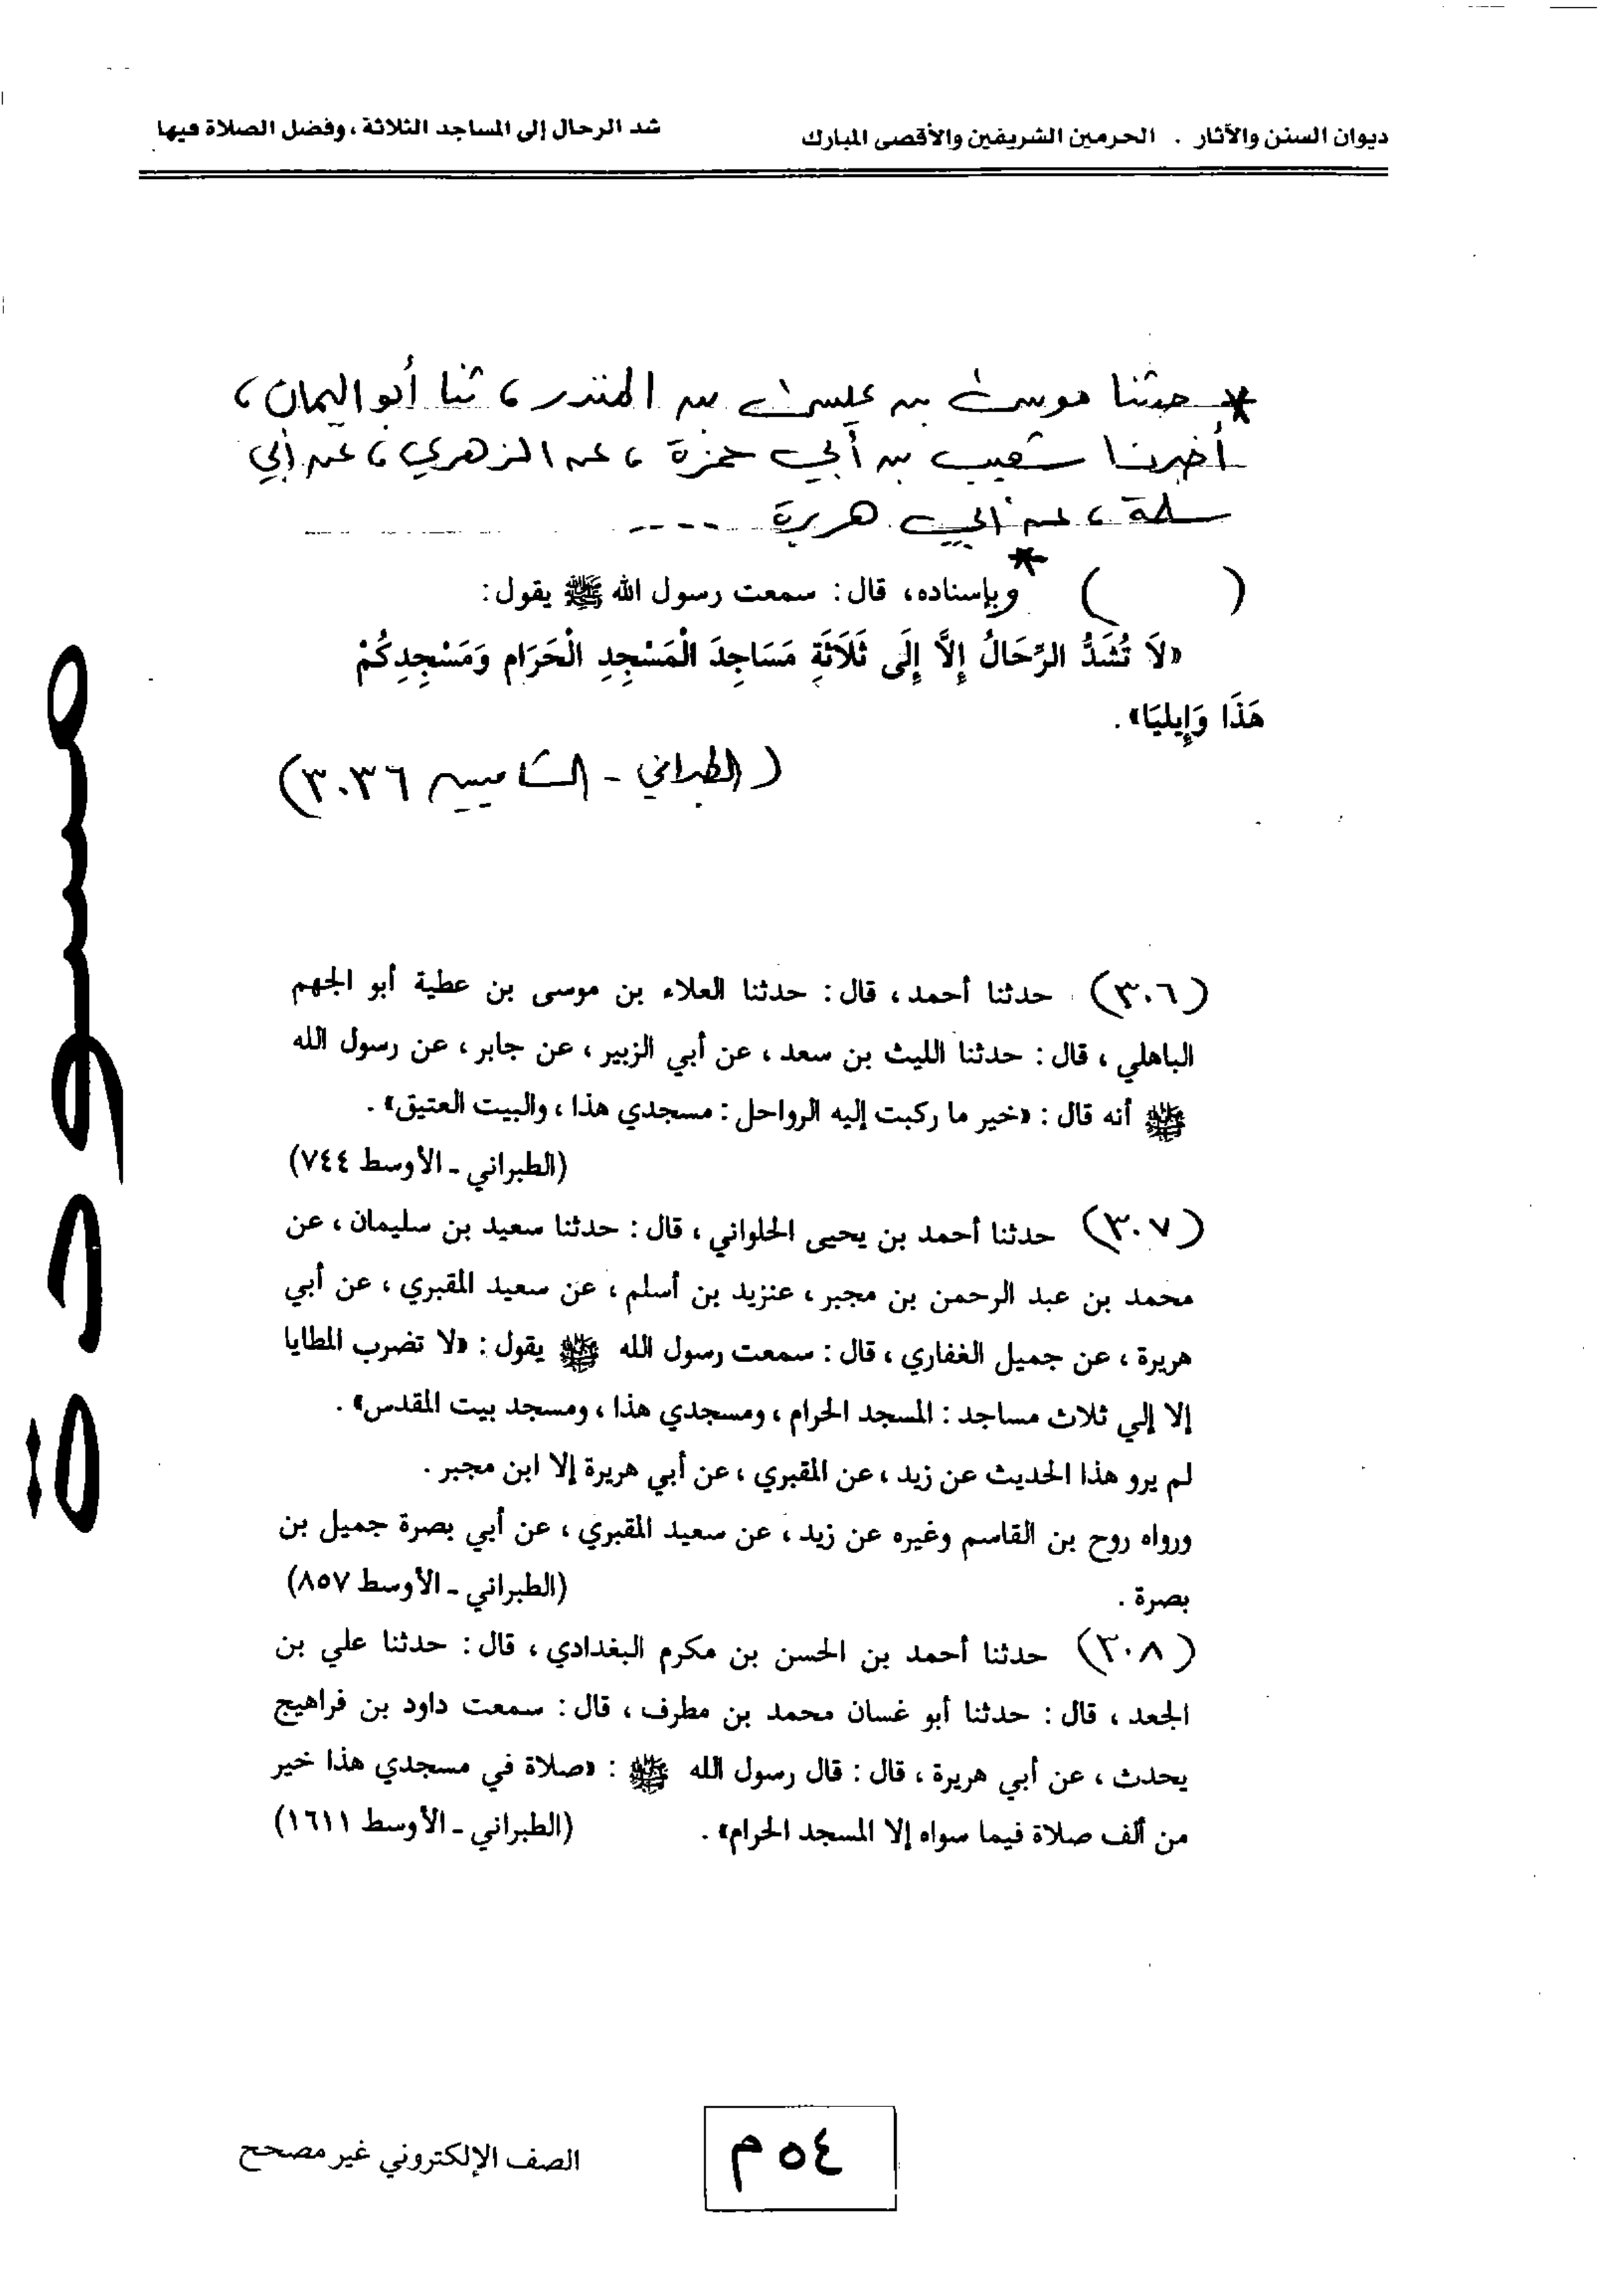 ديوان السنن والآثار . الحرمين الشريفين والأقصى المبارك
شد الرحال إلى المساجد الثلاثة ، وفضل الصلاة فيها
* حدثنا موسى بن عيسى بن المنذر ، ثنا أبو اليمان ،
أخبرنا شعيب بن أبي حمزة ، عن الزهري ، عن أبي
سلمة ، عن أبي هريرة ----
( ) * وبإسناده، قال: سمعت رسول الله ﷺ يقول:
«لَا تُشَدُّ الرِّحَالُ إِلَّا إِلَى ثَلَاثَةِ مَسَاجِدَ الْمَسْجِدِ الْحَرَامِ وَمَسْجِدِكُمْ
هَذَا وَإِيلِيَا» .
(الطبراني - الشاميين ٣٠٣٦)
(٣٠٦) حدثنا أحمد ، قال : حدثنا العلاء بن موسى بن عطية أبو الجهم
الباهلي ، قال : حدثنا الليث بن سعد ، عن أبي الزبير ، عن جابر ، عن رسول الله
ﷺ أنه قال : «خير ما ركبت إليه الرواحل : مسجدي هذا ، والبيت العتيق» .
(الطبراني ـ الأوسط ٧٤٤)
(٣٠٧) حدثنا أحمد بن يحيى الحلواني ، قال : حدثنا سعيد بن سليمان ، عن
محمد بن عبد الرحمن بن مجبر ، عنزيد بن أسلم ، عن سعيد المقبري ، عن أبي
هريرة ، عن جميل الغفاري ، قال : سمعت رسول الله ﷺ يقول : «لا تضرب المطايا
إلا إلي ثلاث مساجد : المسجد الحرام ، ومسجدي هذا ، ومسجد بيت المقدس» .
لم يرو هذا الحديث عن زيد ، عن المقبري ، عن أبي هريرة إلا ابن مجبر .
ورواه روح بن القاسم وغيره عن زيد ، عن سعيد المقبري ، عن أبي بصرة جميل بن
بصرة . (الطبراني ـ الأوسط ٨٥٧)
(٣٠٨) حدثنا أحمد بن الحسن بن مكرم البغدادي ، قال : حدثنا علي بن
الجعد ، قال : حدثنا أبو غسان محمد بن مطرف ، قال : سمعت داود بن فراهيج
يحدث ، عن أبي هريرة ، قال : قال رسول الله ﷺ : «صلاة في مسجدي هذا خير
من ألف صلاة فيما سواه إلا المسجد الحرام» . (الطبراني ـ الأوسط ١٦١١)
مسودة
٥٤ م
الصف الإلكتروني غير مصحح